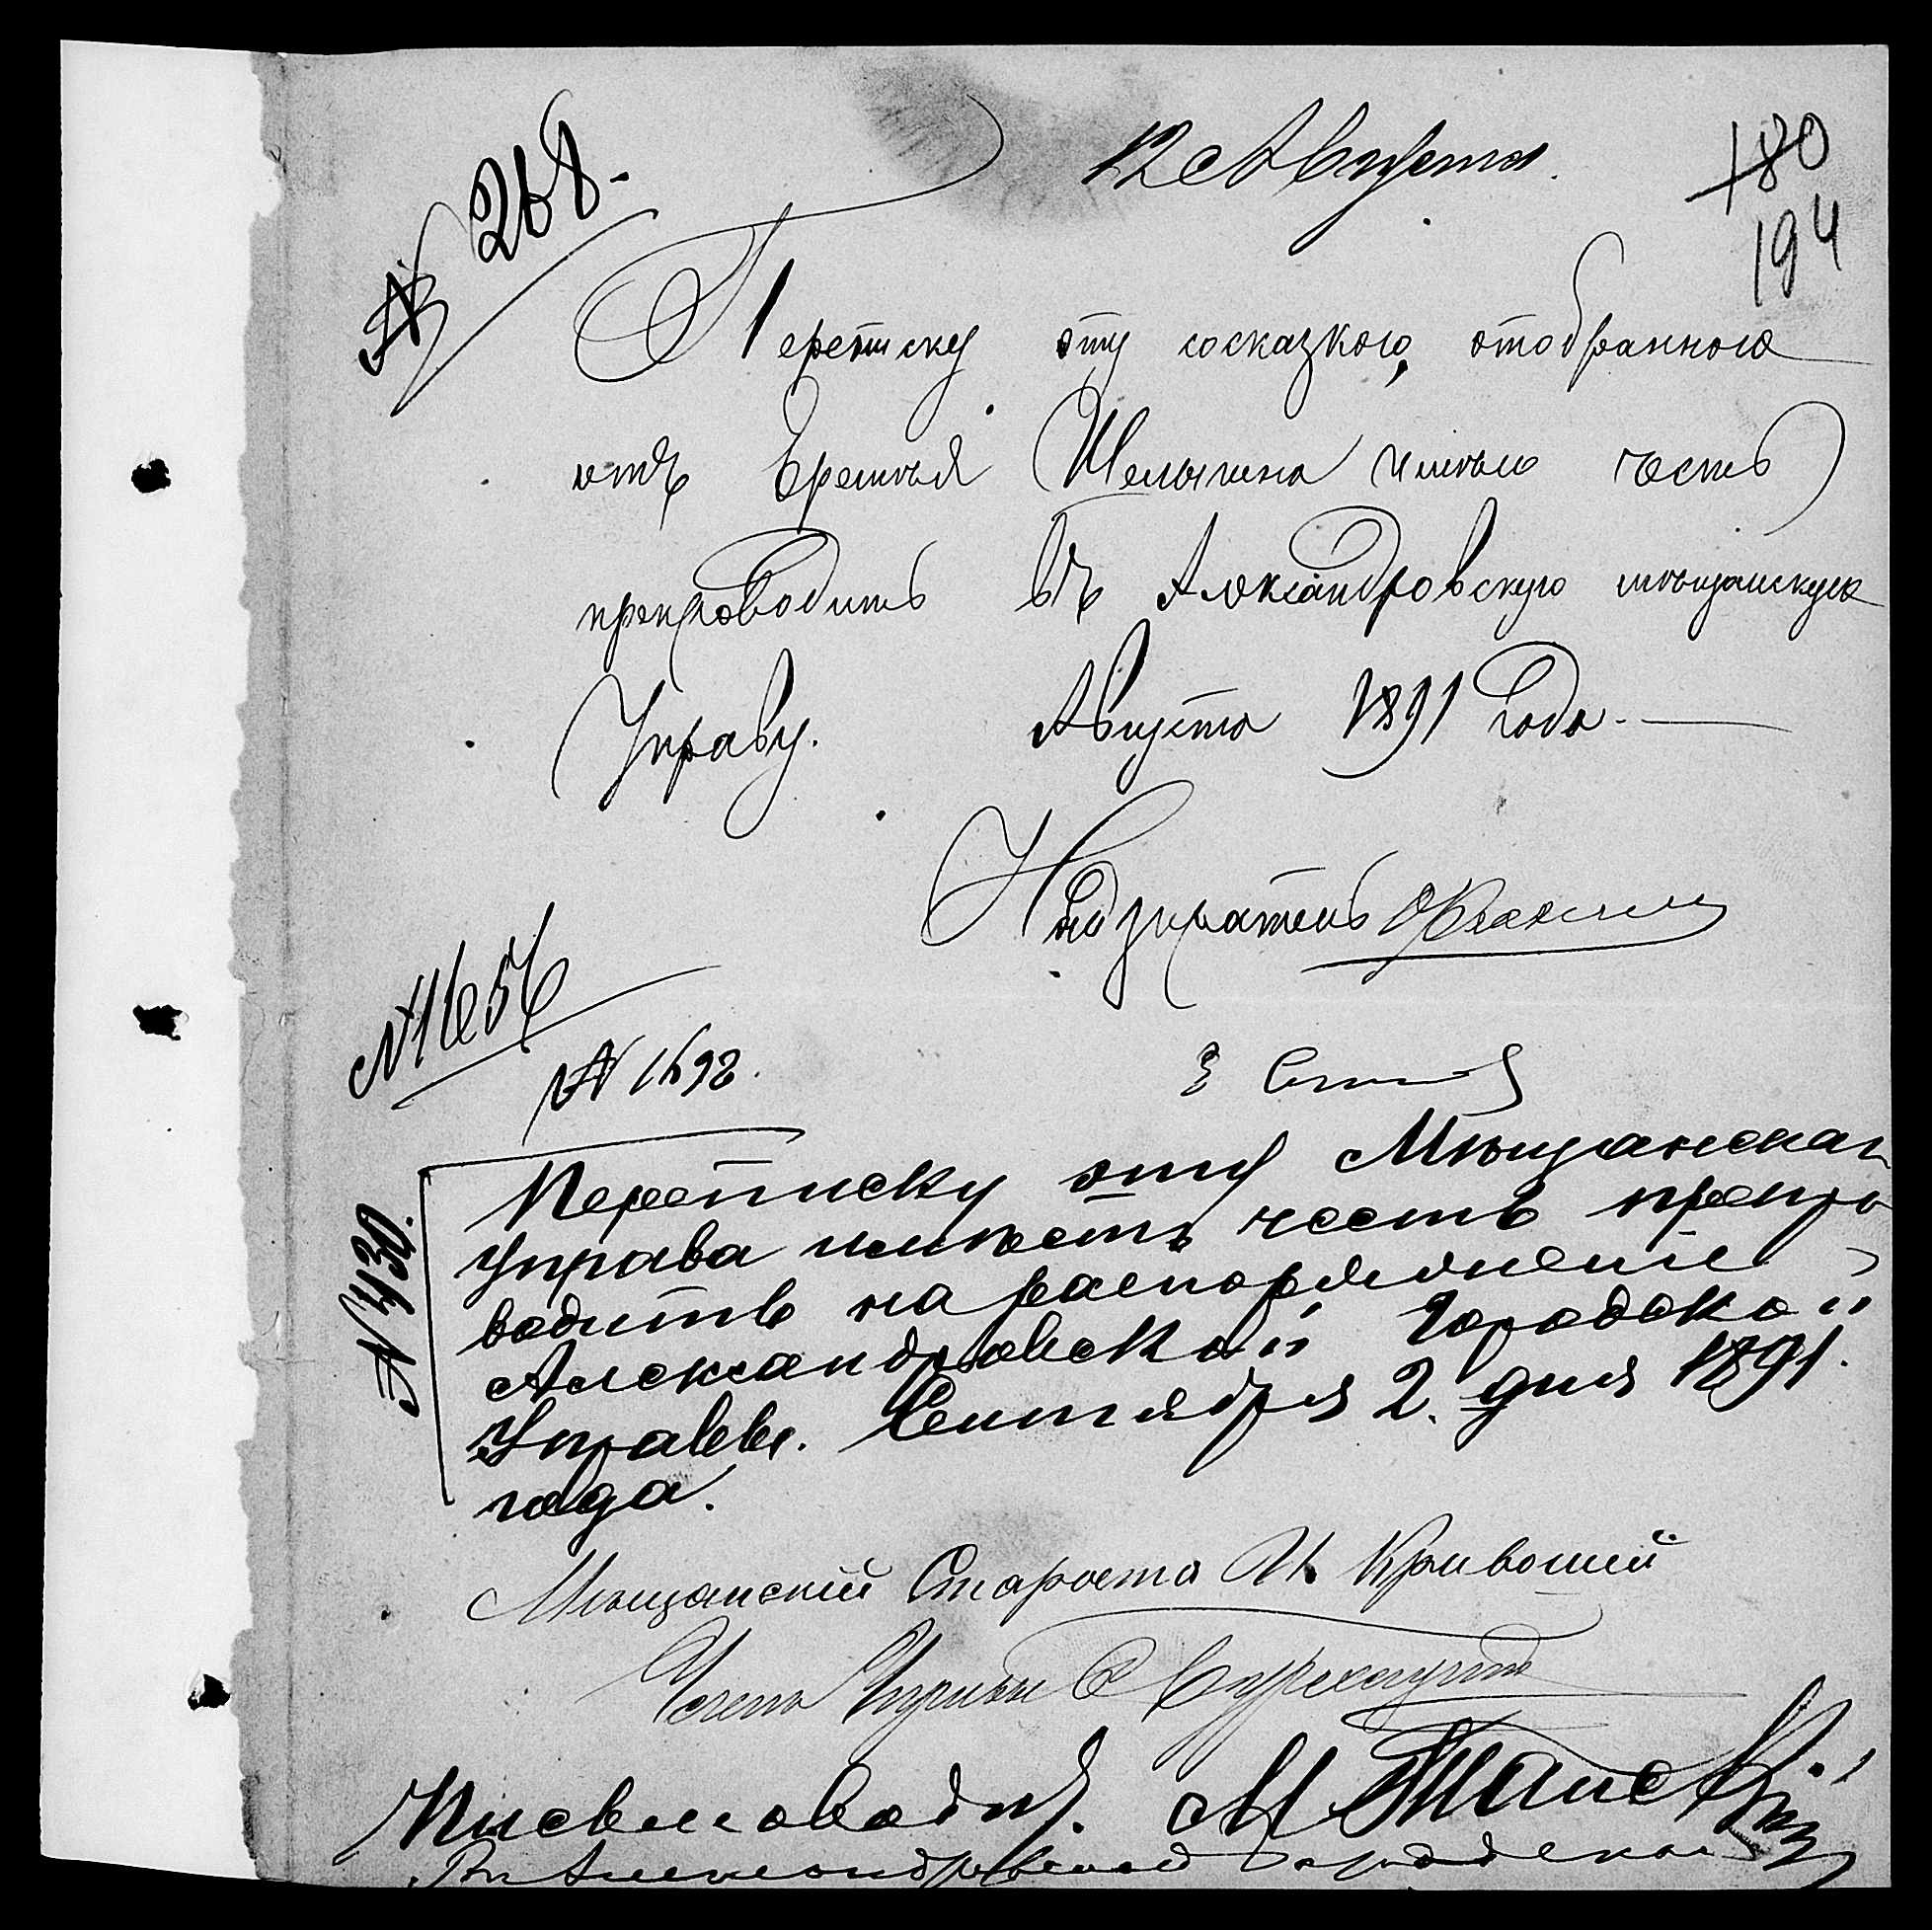 № 268.
12 Августа.
180
194
Переписку эту со сказкою, отобранною
отъ Еремѣя Шелыгина имѣю честь
препроводить въ Александровскую мѣщанскую
Управу. Августа 1891 года.
Надзиратель
№ 1656
№ 1698.
3 Сент
№ 430.
Переписку эту Мѣщанская
Управа имѣетъ честь препро
водить на распоряженіе
Александровской Городской
Управы. Сентября 2. дня 1891.
года.
Мѣщанскій Староста И. Кривошей
Членъ Управы
Письмоводит.
Въ Александровской Городской